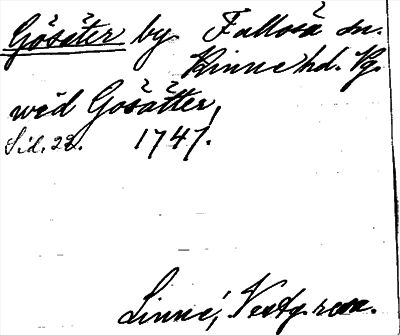 Gösäter by Fullösa sn.
Kinne hd. Vg.
wid Gösätter,
Sid. 22. 1747.
Linné, Vestg. resa.